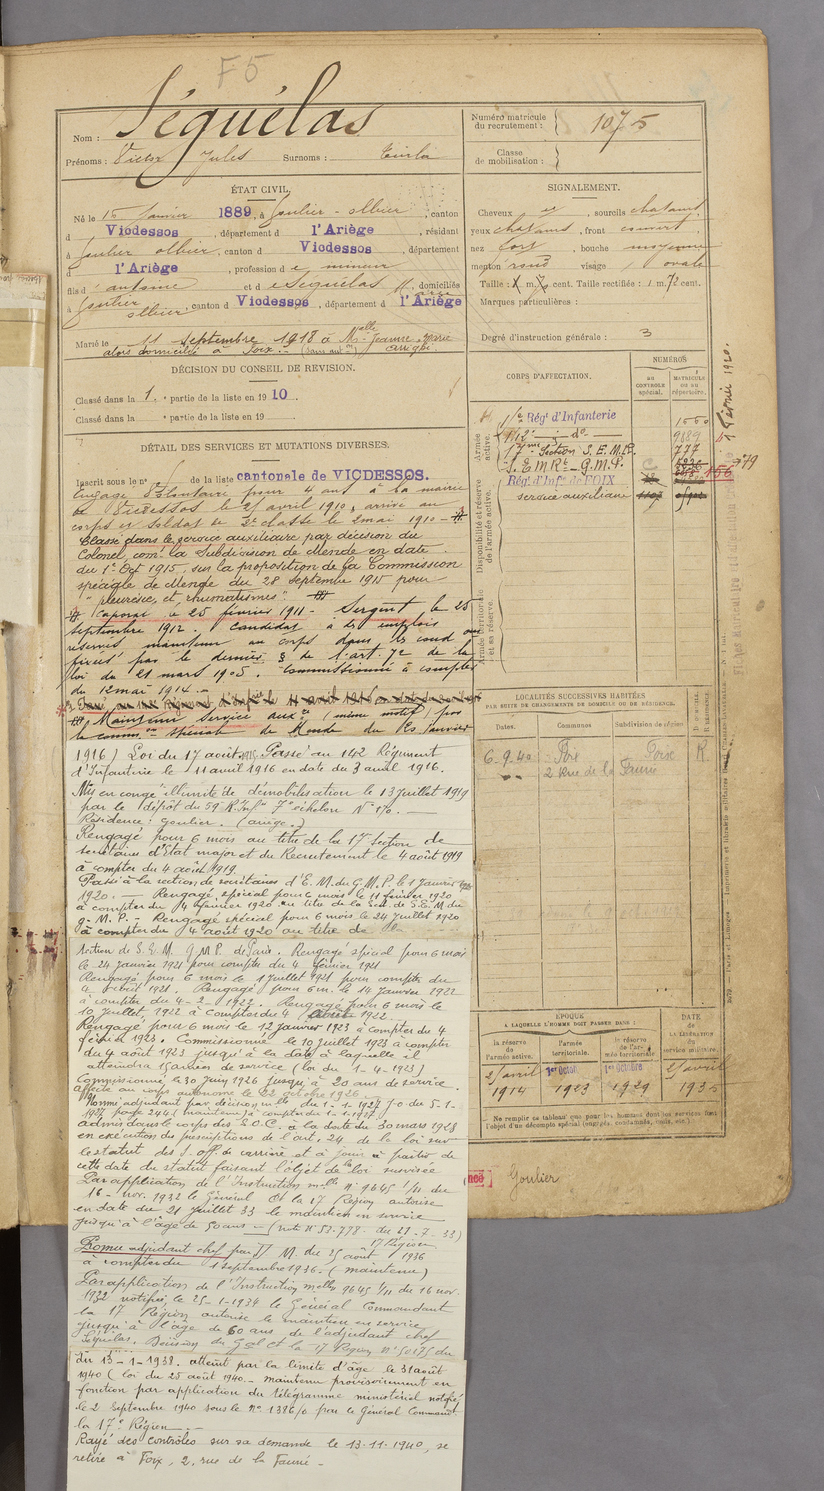 F5
Nom : Séguélas
Prénoms : Victor Jules Surnoms :
Numéro matricule du recrutement : 1075
Classe de mobilisation :
ÉTAT CIVIL.
Né le 15 Janvier 1889, à Goulier-Olbier, canton
d Vicdessos, département d l'Ariège, résidant
à Goulier Olbier, canton d Vicdessos, département
d l'Ariège, profession de mineur
fils d' antoine et de Séguélas Marie, domiciliés
à Goulier Olbier, canton d Vicdessos, département d l'Ariège
Marié le 11 Septembre 1918 à Mlle Jeanne Marie
alors domiciliée à Foix.
SIGNALEMENT.
Cheveux et, sourcils chatains
yeux chatains, front couvert,
nez fort, bouche moyenne
menton rond visage ovale
Taille : 1 m. 7 cent. Taille rectifiée : 1 m. 72 cent.
Marques particulières :
Degré d'instruction générale : 3
DÉCISION DU CONSEIL DE REVISION.
Classé dans la 1e partie de la liste en 1910
Classé dans la e partie de la liste en 19
DÉTAIL DES SERVICES ET MUTATIONS DIVERSES.
Inscrit sous le n° de la liste cantonale de VICDESSOS.
Engagé Volontaire pour 4 ans à la mairie
de Vicdessos le 25 avril 1910, arrivé au
corps et Soldat de 2e classe le 2 mai 1910 -
Classé dans le service auxiliaire par décision du
Colonel comt la Subdivision de Mende en date
du 1er Oct 1915, sur la proposition de la Commission
spéciale de Mende du 28 Septembre 1915 pour
"pleurésie, et rhumatismes".
Caporal le 25 février 1911 - Sergent le 25
septembre 1912. Candidat à des emplois
réservés maintenu au corps dans les cond ons
fixées par le dernier § de l'art. 72 de la
loi du 21 mars 1905. Commissionné à compter
du 12 mai 1914.
Maintenu Service auxre (même motif) par
la common spéciale de Mende du Janvier
1916) Loi du 17 août 1915. Passé au 142 Régiment
d'Infanterie le 11 avril 1916 en date du 3 avril 1916.
Mis en congé illimité de démobilisation le 13 Juillet 1919
par le dépôt du 59 R. Infie 7e échelon N° 170.
Résidence : Goulier. (ariège.)
Rengagé pour 6 mois au titre de la 17 Section de
secrétaires d'Etat major et du Recrutement le 4 août 1919
à compter du 4 août 1919.
Passé à la section de secrétaires d'E.M. du G.M.P. le 1 Janvier
1920. - Rengagé spécial pour 6 mois le 11 février 1920
à compter du 4 février 1920 au titre de la Son de S.E.M. du
G.M.P. - Rengagé spécial pour 6 mois le 24 Juillet 1920
à compter du 4 août 1920 au titre de la
section de S.E.M. G.M.P. de Paris. Rengagé spécial pour 6 mois
le 24 Janvier 1921 pour compter du 4 février 1921
Rengagé pour 6 mois le 1 Juillet 1921 pour compter du
4 août 1921. Rengagé pour 6 m. le 14 Janvier 1922
à compter du 4-2-1922. Rengagé pour 6 mois le
10 Juillet 1922 à compter du 4 août 1922
Rengagé pour 6 mois le 12 janvier 1923 à compter du 4
février 1923. Commissionné le 10 Juillet 1923 à compter
du 4 août 1923 jusqu'à la date à laquelle il
atteindra 15 années de service (loi du 1-4-1923)
Commissionné le 30 Juin 1926 jusqu'à 20 ans de service.
Affecté au corps autonome le 22 octobre 1926
Nommé adjudant par décision mlle du 1-1-1927 J.O. du 5-1-
1927 page 244 (maintenu) à compter du 1-1-1927.
admis dans le corps des S.O.C. à la date du 30 mars 1928
en exécution des prescriptions de l'art. 24 de la loi sur
le statut des S. off de carrière et à jouir à partir de
cette date du statut faisant l'objet de la loi susvisée
Par application de l'Instruction mlle N° 9645 1/11 du
16 - nov. 1932 le Général Ct la 17 Région autorise
en date du 21 Juillet 33 le maintien en service
jusqu'à l'âge de 50 ans - (note N° 53-778 - du 21-7-33)
17 Région
Promu adjudant chef par D.M. du 25 août 1936
à compter du 1 septembre 1936 - (maintenu)
Par application de l'Instruction mlle 9645 1/11 du 16 nov.
1932 notifiée le 25-1-1934 le Général Commandant
la 17 Région autorise le maintien en service
jusqu'à l'âge de 60 ans de l'adjudant chef
Séguélas. Décision du Gal Ct la 17 Région N° 50175 du
du 13-1-1938. atteint par la limite d'âge le 31 août
1940 (loi du 25 août 1940 - maintenu provisoirement en
fonction par application du télégramme ministériel notifié
le 2 Septembre 1940 sous le N° 1386/0 par le Général Commandt
la 17e Région
Rayé des contrôles sur sa demande le 13.11.1940, se
retire à Foix, 2, rue de la Faurie -
CORPS D'AFFECTATION.
NUMÉROS
AU CONTRÔLE spécial.
MATRICULE ou au répertoire.
Armée active.
Régt d'Infanterie
142e do 9889
17me Section S.E.M.R. 777
S.E.M.Rt - G.M.P. 156
Régt d'Infie de FOIX
service auxiliaire
Disponibilité et réserve de l'armée active.
Armée territoriale et sa réserve
LOCALITÉS SUCCESSIVES HABITÉES
PAR SUITE DE CHANGEMENTS DE DOMICILE OU DE RÉSIDENCE.
Dates. Communes Subdivision de région D. domicile. R. résidence.
6-9-40 Foix Foix R.
2 Rue de la Faurie
ÉPOQUE
A LAQUELLE L'HOMME DOIT PASSER DANS :
la réserve de l'armée active. l'armée territoriale. la réserve de l'armée territoriale
DATE de LA LIBÉRATION du service militaire.
25 avril 1914
1er Octobre 1923
1er Octobre 1929
25 avril 1935
Ne remplir ce tableau que pour les hommes dont les services font
l'objet d'un décompte spécial (engagés, condamnés, omis, etc.).
Goulier